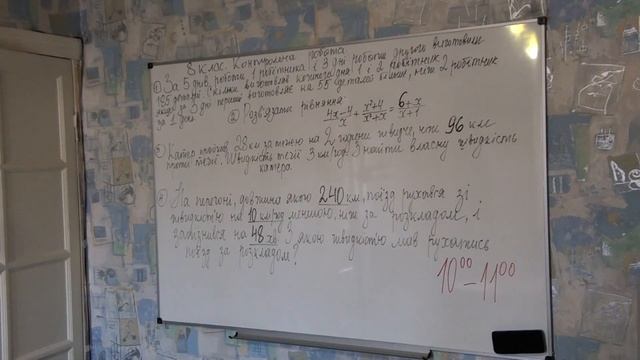 8 клас. Контрольна робота
① За 5 днів роботи 1 робітника і 3 дні роботи другого виготовили
165 деталей. Скільки виготовляв кожного дня 1 і 2 робітник
якщо за 3 дні перший виготовляє на 55 деталей більше, ніж 2 робітник
за 1 день.
② Розв'язати рівняння
4x-4/x + x²+4/x²+x = 6+x/x+1
③ Катер пройшов 28 км за течією на 2 години швидше, ніж 96 км
проти течії. Швидкість течії 3 км/год. Знайти власну швидкість
катера.
④ На перегоні, довжина якого 240 км, поїзд рухався зі
швидкістю на 10 км/год меншою, ніж за розкладом, і
запізнився на 48 хв. З якою швидкістю мав рухатись
поїзд за розкладом?
10⁰⁰-11⁰⁰